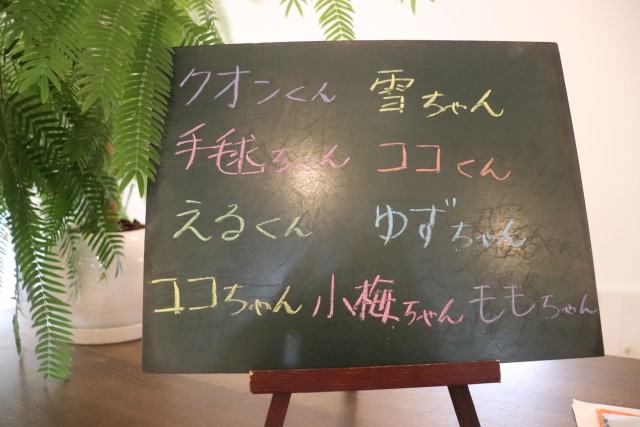 クオンくん 雪ちゃん
手毬ちゃん ココくん
えるくん ゆずちゃん
ココちゃん 小梅ちゃん ももちゃん